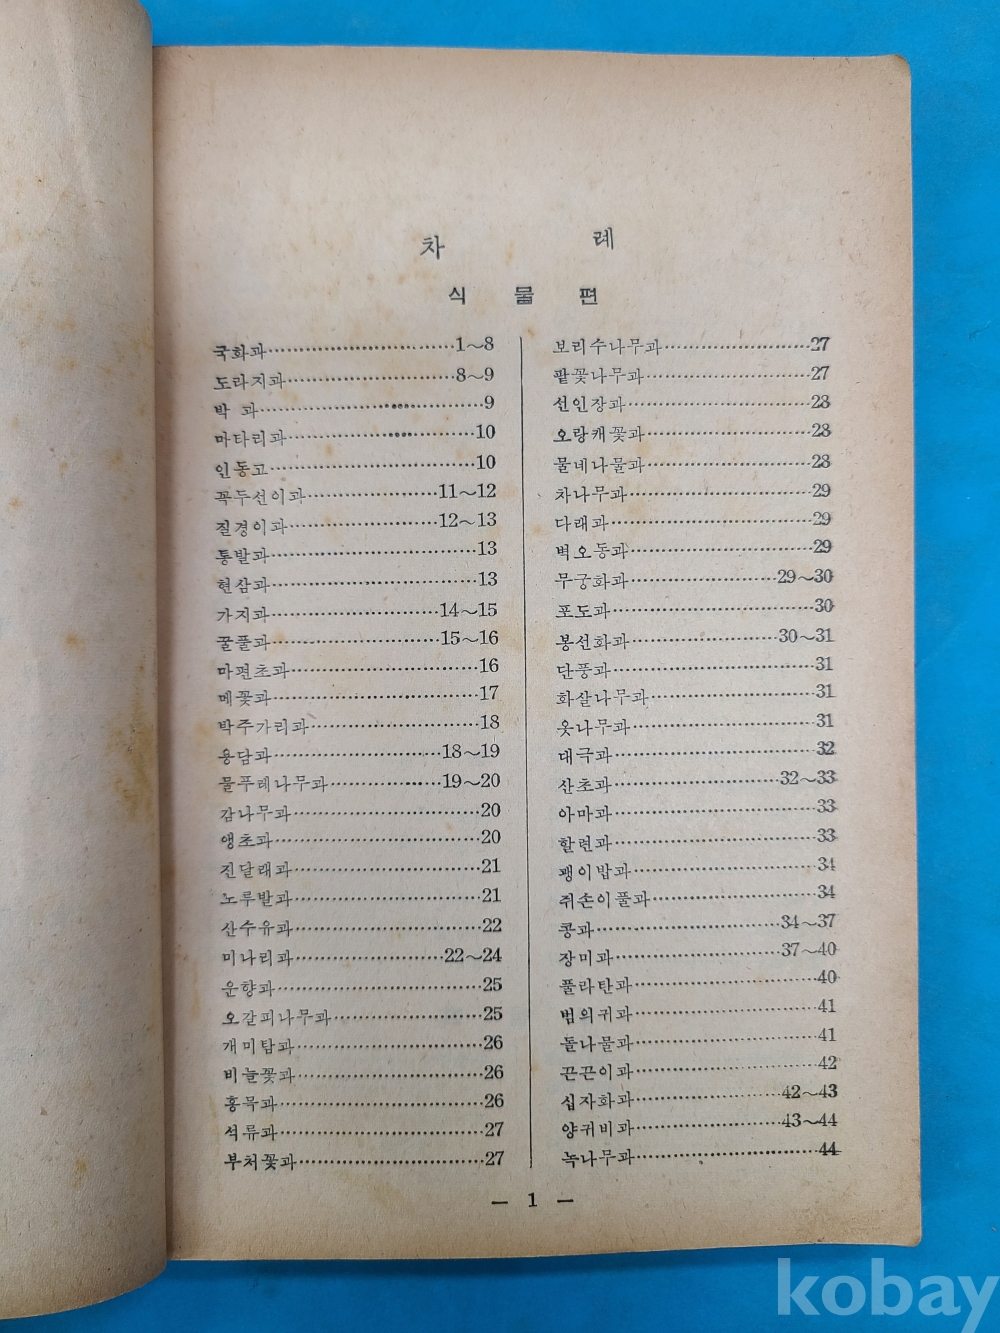 차 례
식 물 편
국화과……………………1～8
도라지과……………………8～9
박 과……………………9
마타리과……………………10
인동고……………………10
꼭두선이과……………………11～12
질경이과……………………12～13
통발과……………………13
현삼과……………………13
가지과……………………14～15
꿀풀과……………………15～16
마편초과……………………16
메꽃과……………………17
박주가리과……………………18
용담과……………………18～19
물푸레나무과……………………19～20
감나무과……………………20
앵초과……………………20
진달래과……………………21
노루발과……………………21
산수유과……………………22
미나리과……………………22～24
운향과……………………25
오갈피나무과……………………25
개미탑과……………………26
비늘꽃과……………………26
홍목과……………………26
석류과……………………27
부처꽃과……………………27
보리수나무과……………………27
팥꽃나무과……………………27
선인장과……………………28
오랑캐꽃과……………………28
물네나물과……………………28
차나무과……………………29
다래과……………………29
벽오동과……………………29
무궁화과……………………29～30
포도과……………………30
봉선화과……………………30～31
단풍과……………………31
화살나무과……………………31
옷나무과……………………31
대극과……………………32
산초과……………………32～33
아마과……………………33
할련과……………………33
괭이밥과……………………34
쥐손이풀과……………………34
콩과……………………34～37
장미과……………………37～40
풀라탄과……………………40
범의귀과……………………41
돌나물과……………………41
끈끈이과……………………42
십자화과……………………42～43
양귀비과……………………43～44
녹나무과……………………44
— 1 —
kobay